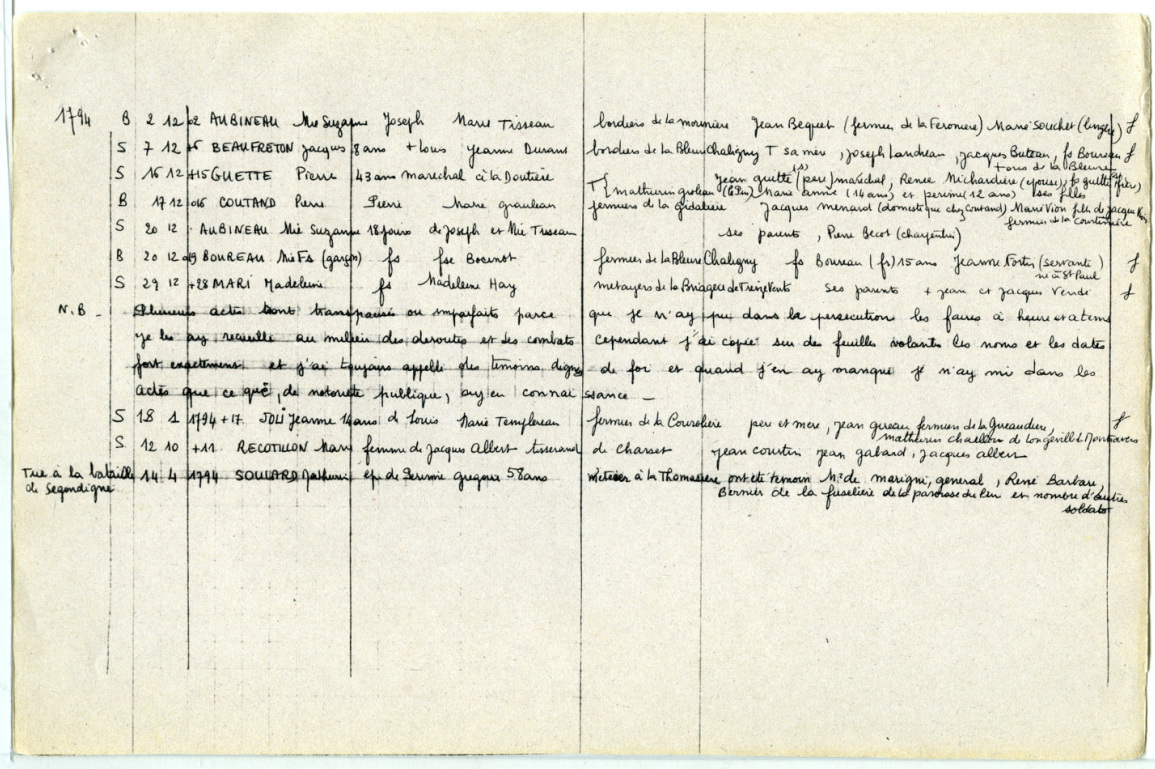 1794 B 2 12 o2 AUBINEAU Mie Suzanne Joseph Marie Tisseau bordiers de la mouriniere Jean Bequet (fermier de la Feroniere) Marie Souchet (lingère) f
S 7 12 +6 BEAUFRETON Jacques 8 ans + Louis Jeanne Durans bordiers de la Bleure Chaligny T sa mère, Joseph Landreau, Jacques Buteau, fs Boureau f
tous de la Bleure
S 16 12 +15 GUETTE Pierre 43 ans marechal à la Doutière Jean guitté (per) maréchal, Renee Michardière (epouse), fs guitte (frère)
T mathurin groleau (le Pin) Marie année (14 ans) et perine (12 ans) ses filles
B 17 12 o16 COUTAND Pierre Pierre Marie fermiers de la gidaliere Jacques menard (domestique chez Coutand) Marie Vion fille de Jacques
fermiers de la
S 20 12 AUBINEAU Mie Suzanne 18 jours de Joseph et Mie Tisseau ses parents, Pierre Becot (charpentier)
B 20 12 o19 BOUREAU Mie Fs (garçon) fs fse fermiers de la Bleure Chaligny fs Boureau (fs) 15 ans Jeanne Fortin (servante) f
né à St Paul
S 29 12 +28 MARI Madeleine fs Madeleine Hay metayers de la de Treize Vents ses parents + jean et Jacques Vendé f
N.B - Plusieurs actes sont transposés ou imparfaits parce que je n'ay pu dans la persecution les faires à heure et a tems
je les ay recueilli au milieu des deroutes et des combats cependant j'ai copié sur des feuilles volants les noms et les dates
fort exactement et j'ai toujours appellé des temoins dignes de foi et quand j'en ay manqué je n'ay mi dans les
actes que ce que, de notoriété publique, ay en connaissance -
S 18 1 1794 +17 JOLI Jeanne 14 ans d Louis Marie Templereau fermiers de la Couroliere per et mere, jean gireau fermiers de la Gureaudiere, f
mathurin de Longeville
S 12 10 +11 RECOTILLON Marie femme de Jacques Albert tisserand de Charset jean courtin jean gabard, Jacques albert
Tué à la bataille de Segondigné 14 4 1794 SOULARD Mathurin ep. de Perinne gregoire 58 ans à la Thomasiere ont été temoin Mr de marigni, general, René Barbare,
Bernier de la fuseliere de la paroisse du Pin et nombre d'autres
soldats